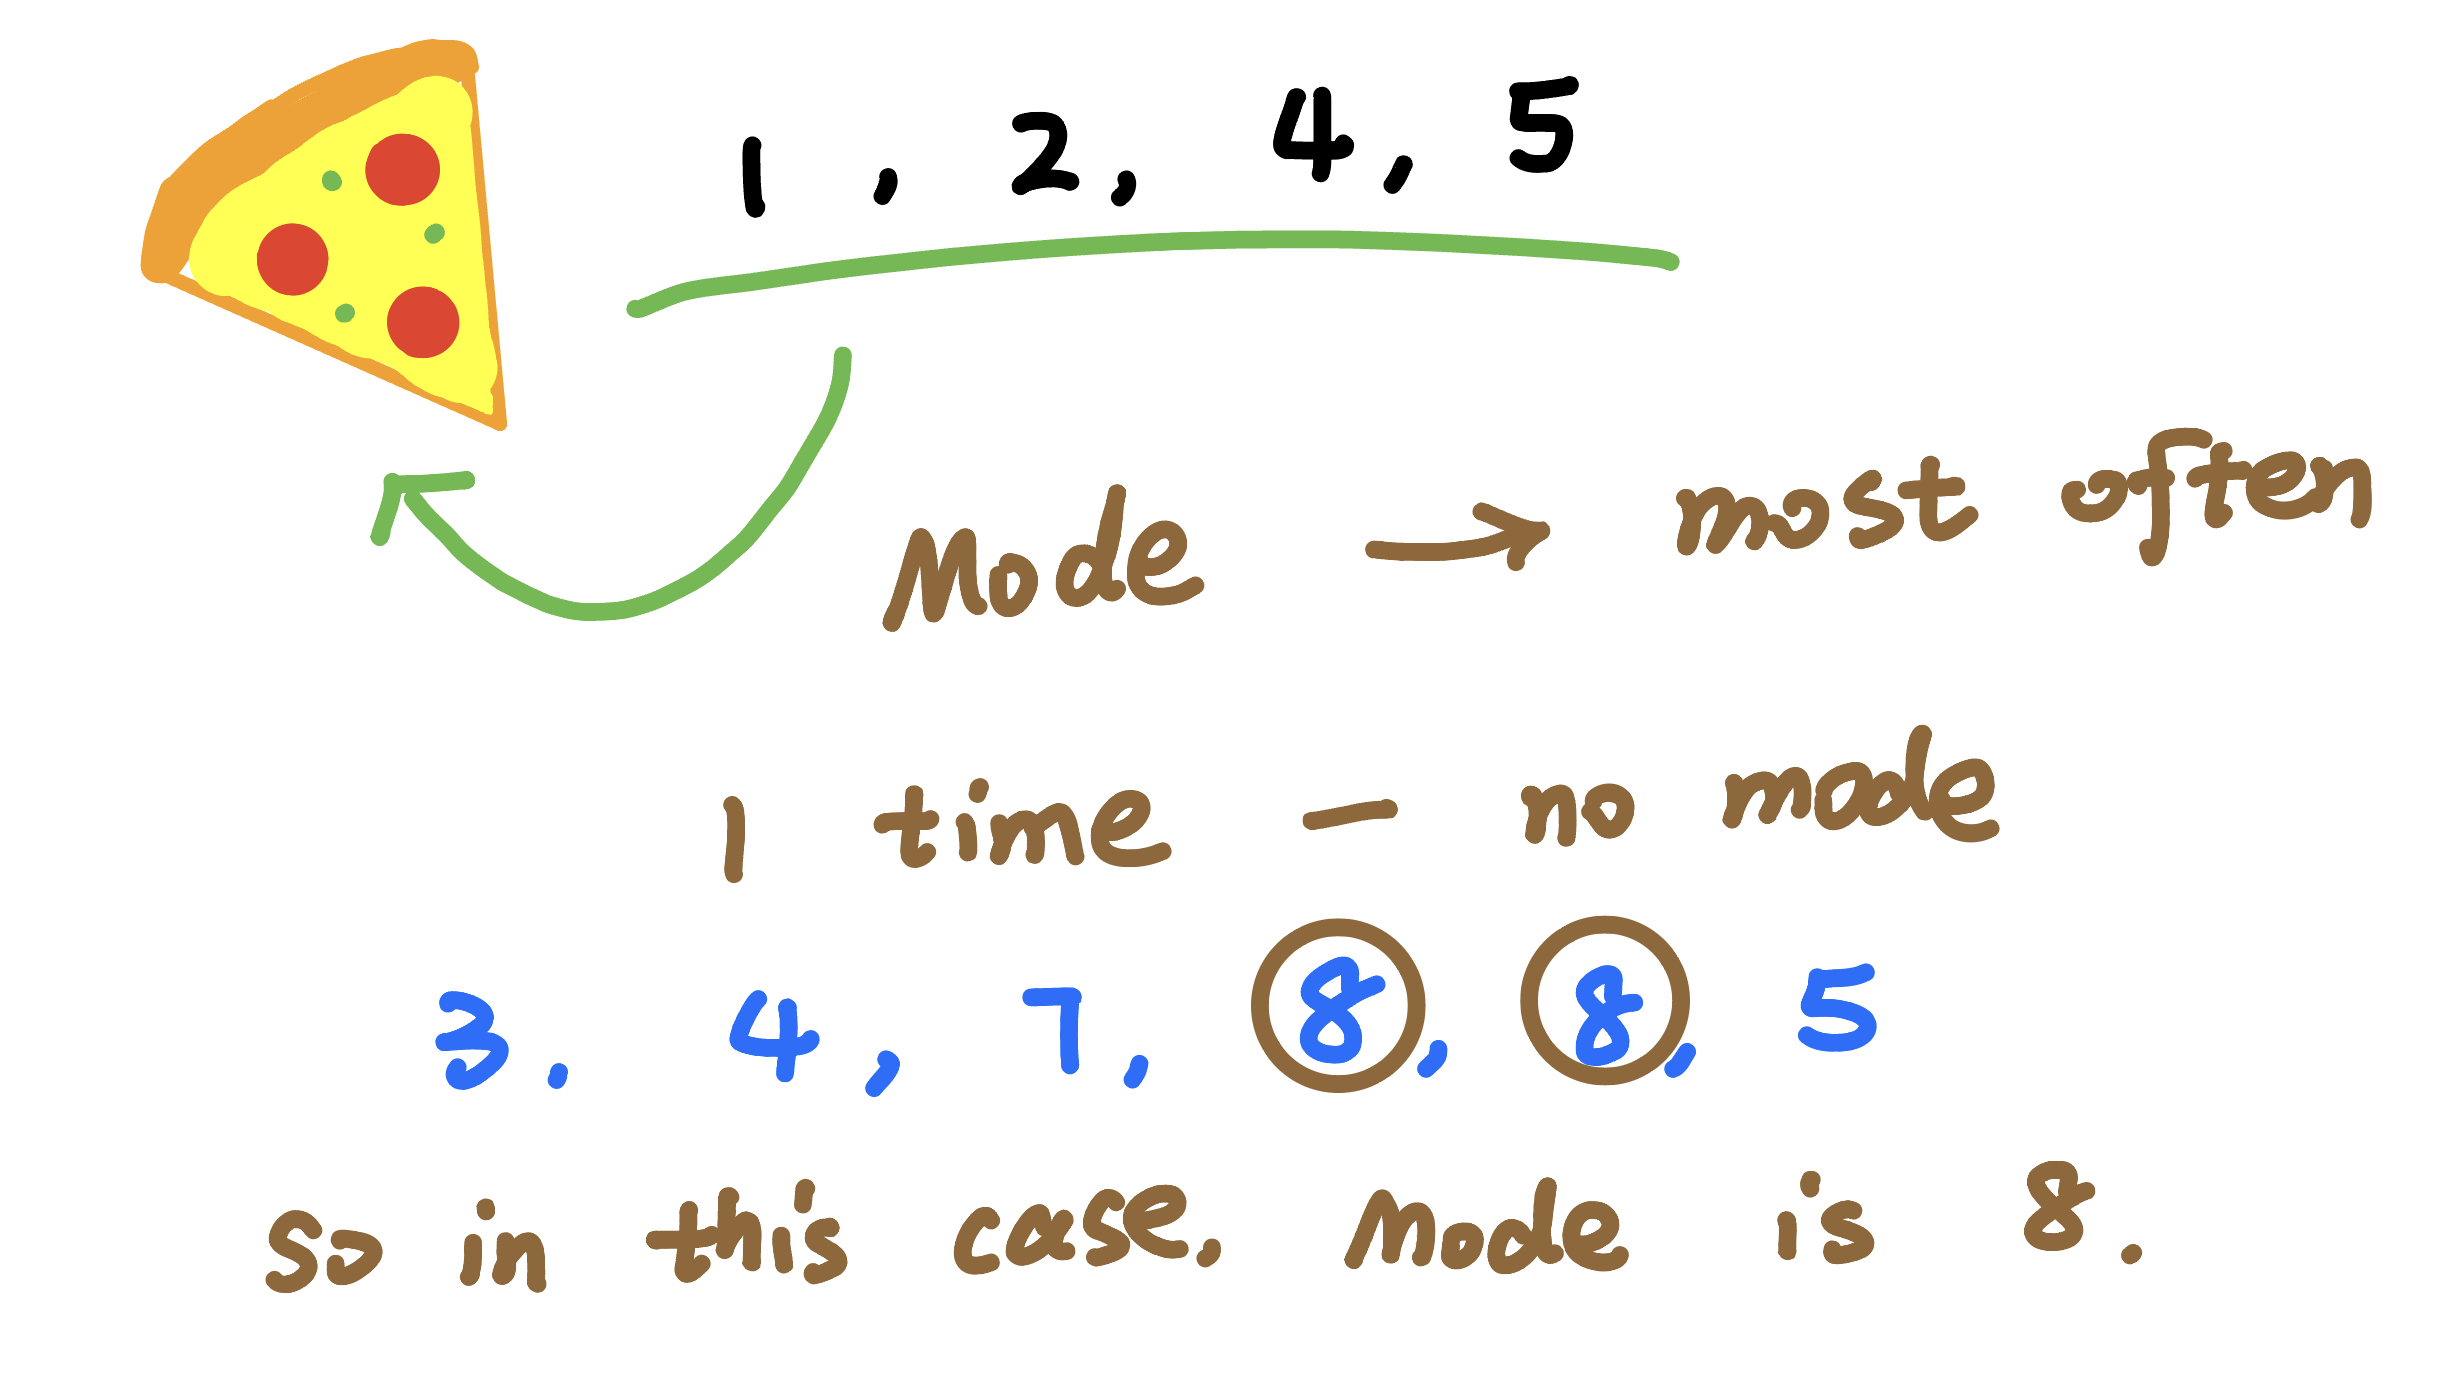 1, 2, 4, 5
Mode → most often
1 time — no mode
3, 4, 7, 8, 8, 5
so in this case, Mode is 8.